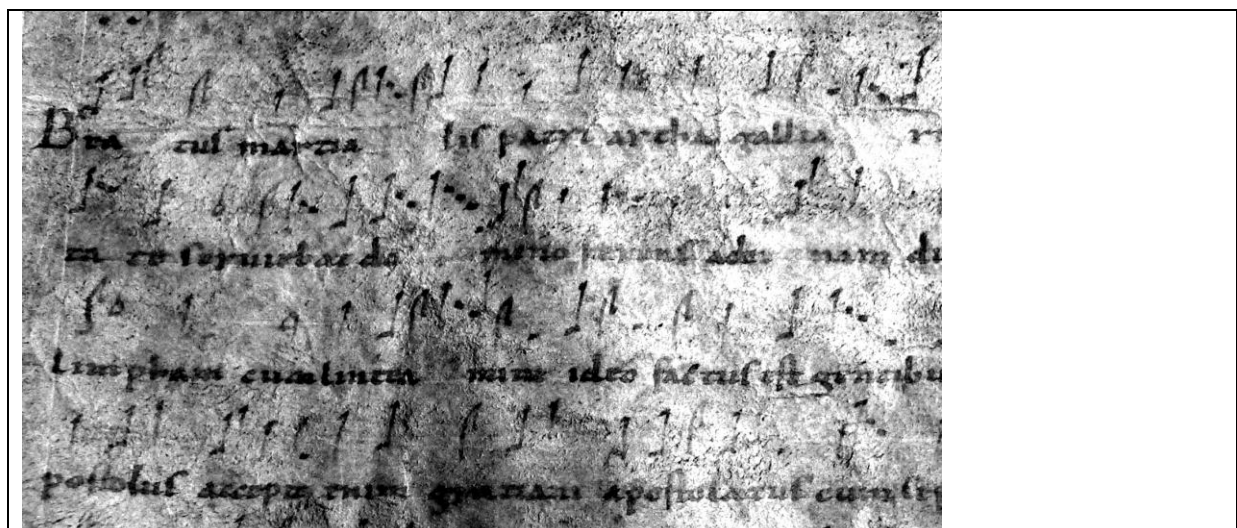 Bea tus martia lis patriarcha gallia r
ta te seruiebat do mino seruus ad
limpham cum lintea mine ideo factus est gentibu
postolus accepit enim gratiam apostolatus cum